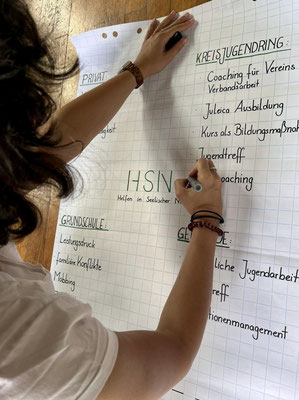 PRIVAT:
igkeit
KREISJUGENDRING:
Coaching für Vereins
Verbandarbeit
Juleica Ausbildung
Kurs als Bildungsmaßnah
Jugendtreff
Coaching
HSN
Helfen in Seelischer N
GRUNDSCHULE:
Leistungsdruck
familiäre Konflikte
Mobbing
GE DE:
liche Jugendarbeit
reff
tionenmanagement